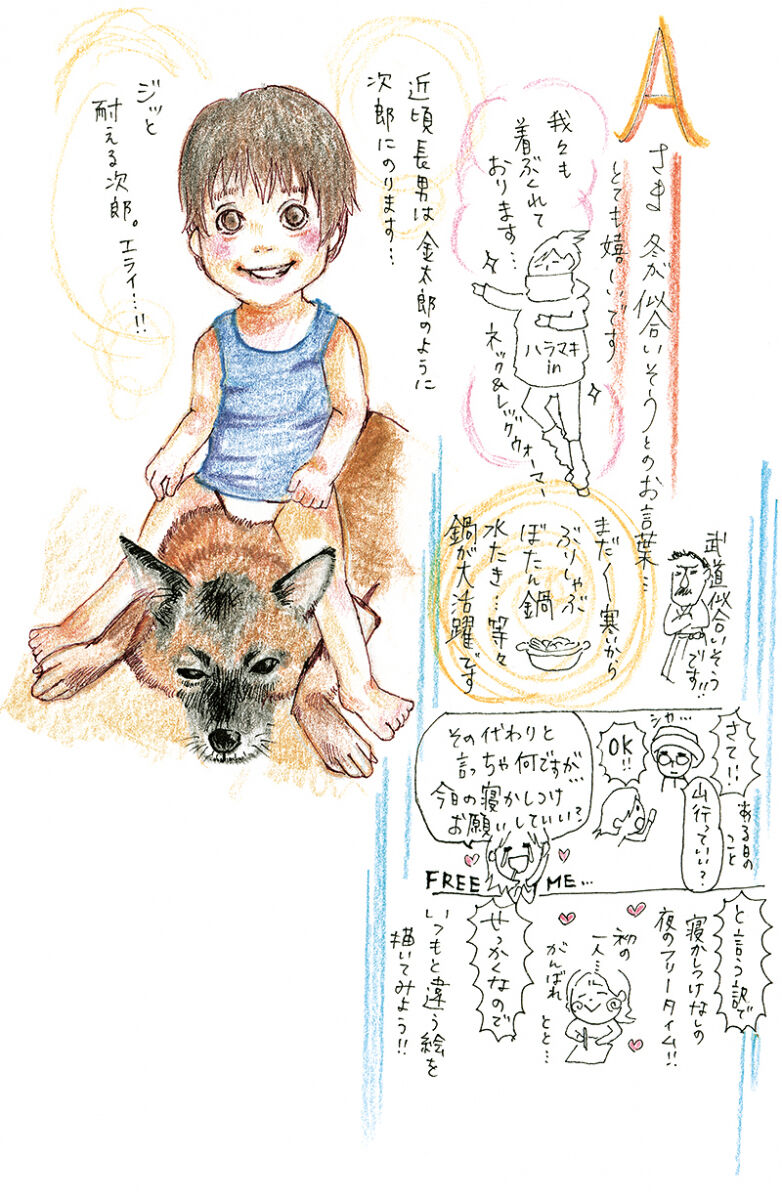 A
さき 冬が似合いそうとのお言葉…
とても嬉しいです
我々も
着ぶくれて
おります…
ハラマキ
in
ネック&レッグウォーマー
武道似合いそう
です!!
まだまだ寒いから
ぶりしゃぶ
ぼたん鍋
水たき…等々
鍋が大活躍です
近頃長男は金太郎のように
次郎にのります…
ジッと
耐える次郎。エライ…!!
さて!!
ある日の
こと
シャ…
山行っていい?
OK!!
その代わりと
言っちゃ何ですが…
今日の寝かしつけ
お願いしていい?
FREE ME…
と言う訳で
寝かしつけなしの
夜のフリータイム!!
初の
一人…
がんばれ
とと…
せっかくなので
いつもと違う絵を
描いてみよう!!